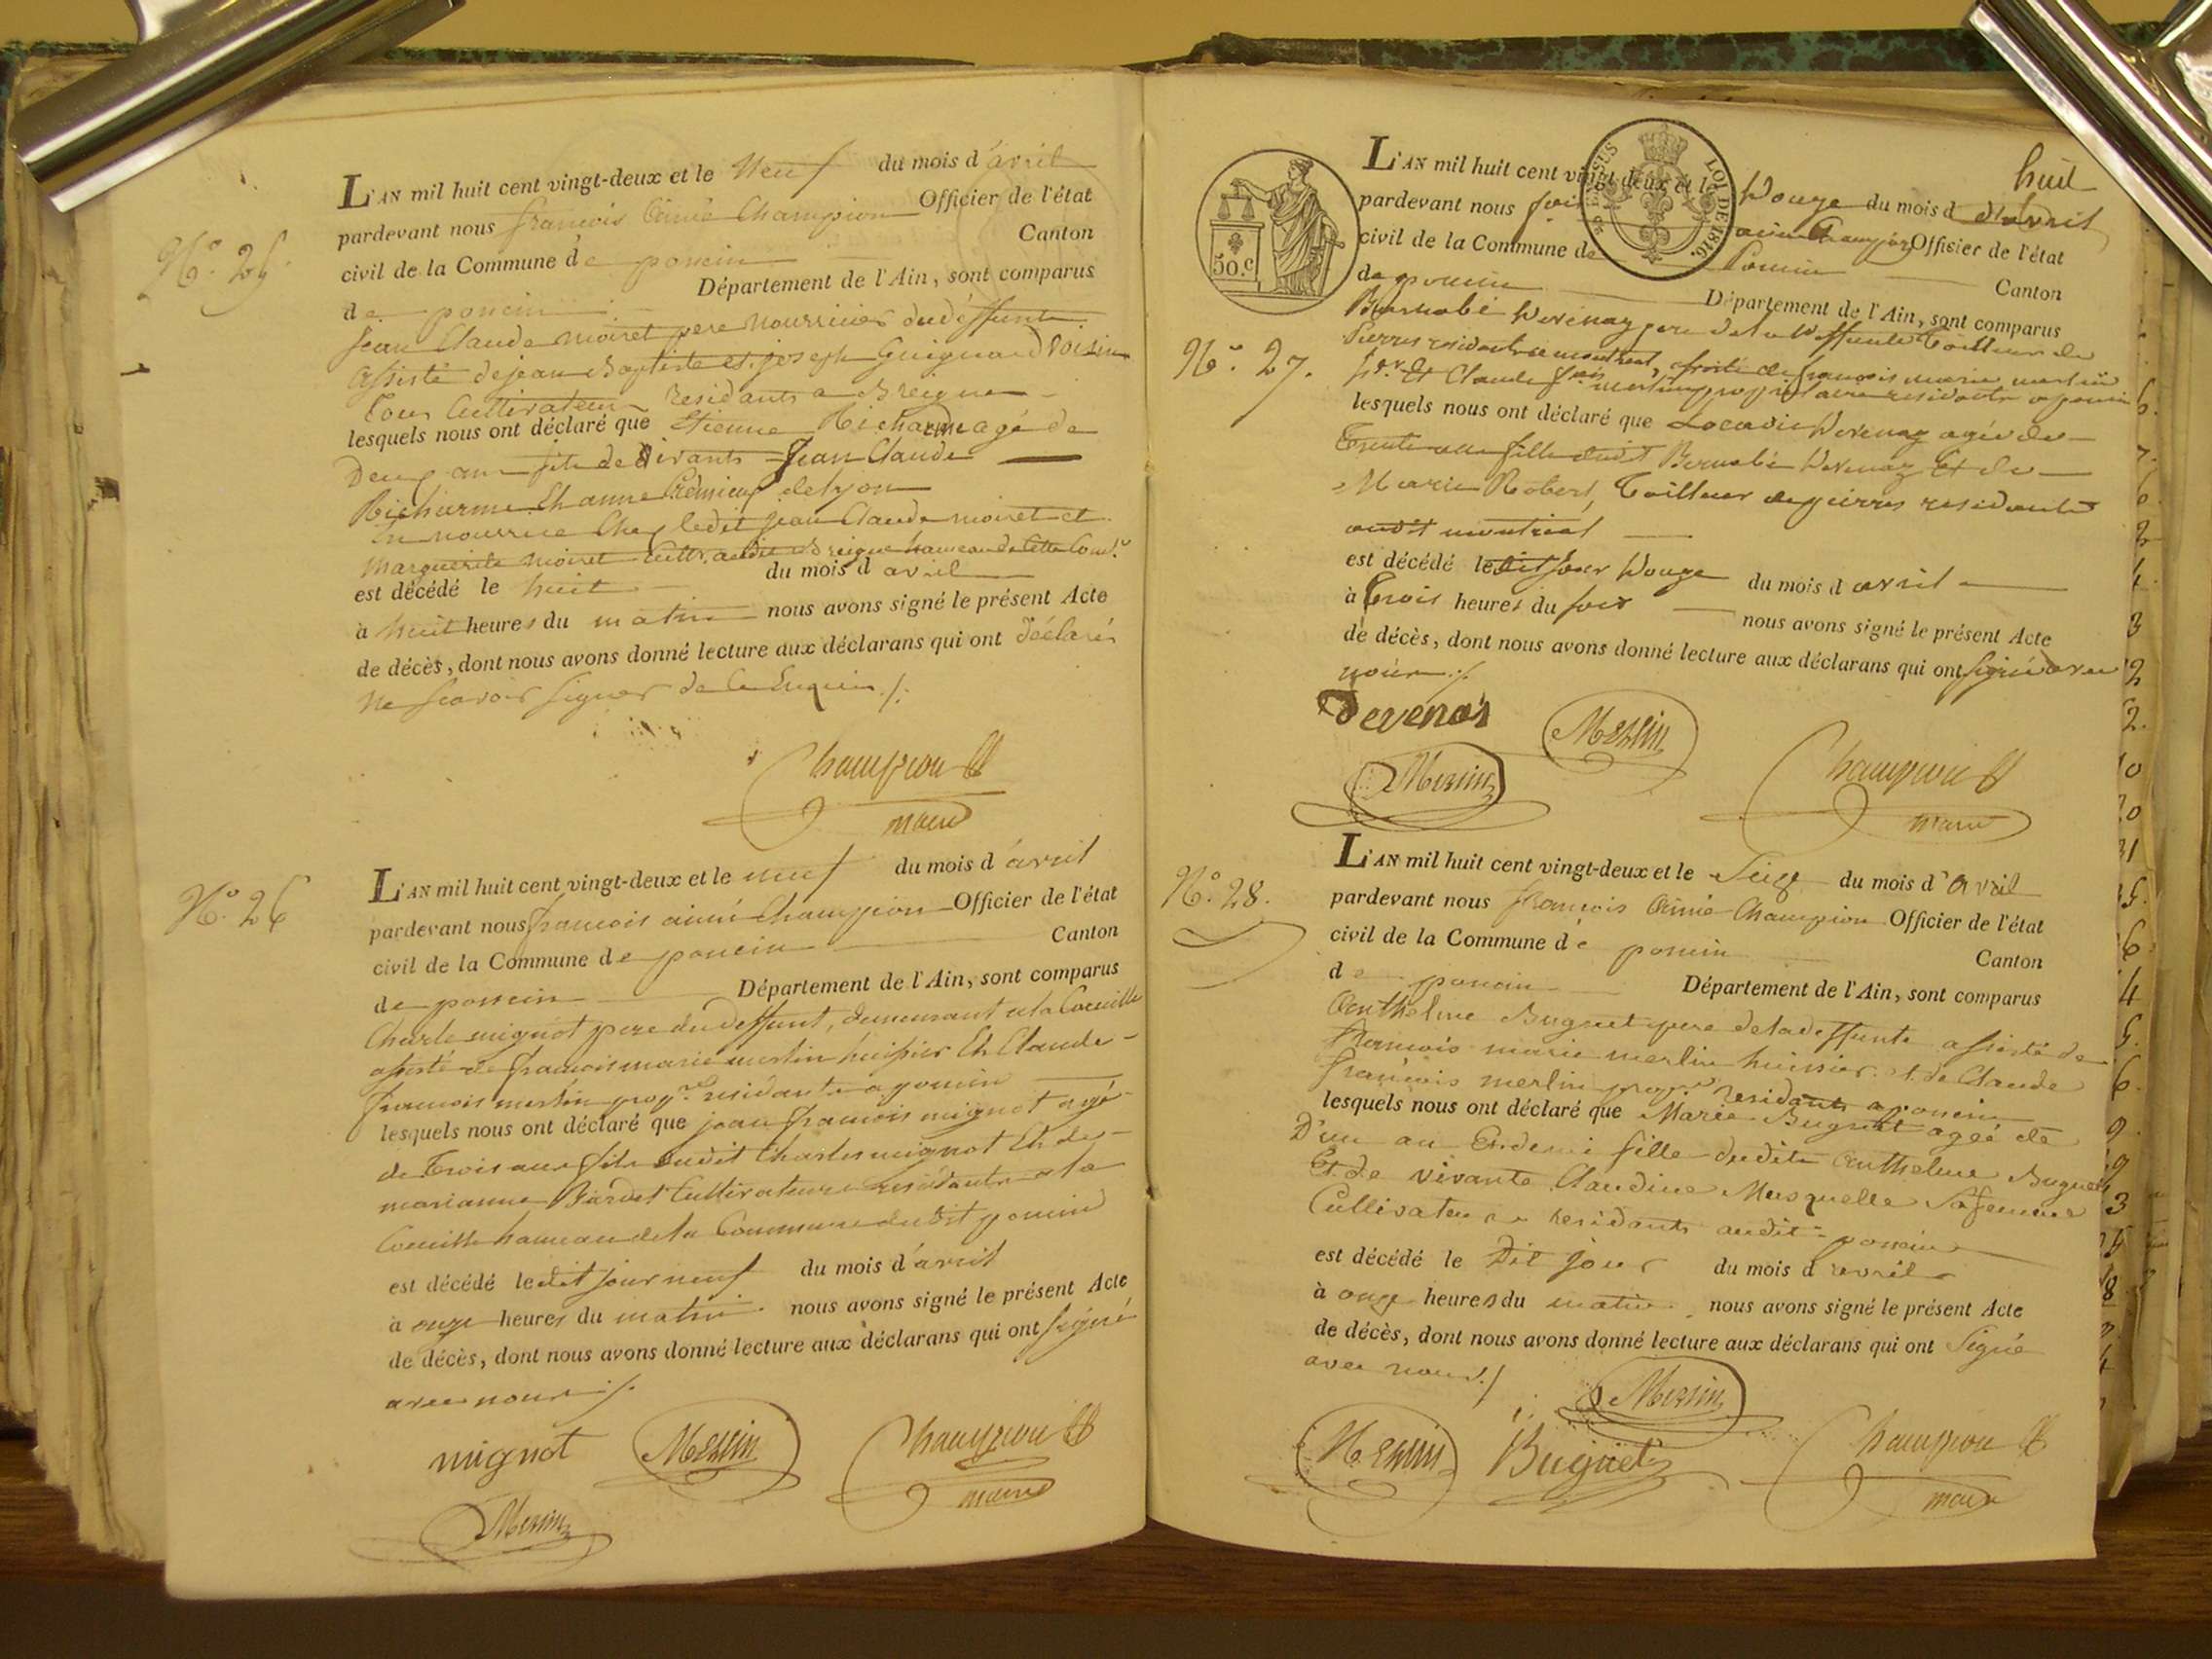 N.º 25
L'AN mil huit cent vingt-deux et le Neuf du mois d'avril
pardevant nous françois Aimé Champion Officier de l'état
civil de la Commune de poncin Canton
de poncin Département de l'Ain, sont comparus
Jean Claude moiret pere nourricier du déffunt
assisté de jean Baptiste et joseph Guignard voisins
tous Cultivateurs residants a Breigne
lesquels nous ont déclaré que Etienne Richarme agé de
Deux ans fils de vivants Jean Claude
Richarme Et anne de lyon
En nourrice Chez ledit Jean Claude moiret et
marguerite moiret Cult. audit Breigne hameau de Cette Com.e
est décédé le huit du mois d avril
à huit heures du matin nous avons signé le présent Acte
de décès, dont nous avons donné lecture aux déclarans qui ont déclarés
ne scavoir signer de ce Enquis ./.
Champion
maire
N.º 26
L'AN mil huit cent vingt-deux et le neuf du mois d'avril
pardevant nous françois aimé Champion Officier de l'état
civil de la Commune de poncin Canton
de poncin Département de l'Ain, sont comparus
Charle mignot pere du deffunt, demeurant a la Coeuille
assisté de françois marie merlin huissier Et Claude
françois merlin prop.re residants a poncin
lesquels nous ont déclaré que jean françois mignot agé
de Trois ans fils dudit Charles mignot Et de
marianne Bardet Cultivateurs residants a la
Coeuille hameau de la Commune dudit poncin
est décédé ledit jour neuf du mois d'avril
à onze heures du matin nous avons signé le présent Acte
de décès, dont nous avons donné lecture aux déclarans qui ont signé
avec nous ./.
mignot Merlin Champion
maire
Merlin
50.C
LOI DE 1816.
N.º 27.
L'AN mil huit cent vingt-deux et le Douze du mois d'avril
huit
pardevant nous aimé Champion Officier de l'état
civil de la Commune de Poncin Canton
de poncin Département de l'Ain, sont comparus
Barnabé Devenaz pere de la Deffunte Tailleur de
Pierres residant a montreal, assisté de françois marie merlin
h.er Et Claude f.ois merlin propriétaire residants a poncin
lesquels nous ont déclaré que Locadie Devenaz agée de
Trente ans fille dudit Barnabé Devenaz Et de
Marie Robert, Tailleur de pierres residants
audit montreal
est décédé le dit jour Douze du mois d avril
à Trois heures du soir nous avons signé le présent Acte
de décès, dont nous avons donné lecture aux déclarans qui ont signé avec
nous ./.
devenas Merlin
Merlin Champion
maire
N.º 28.
L'AN mil huit cent vingt-deux et le Seize du mois d'avril
pardevant nous françois Aimé Champion Officier de l'état
civil de la Commune de poncin Canton
de poncin Département de l'Ain, sont comparus
Anthelme Buguet pere de la deffunte assisté de
François marie merlin huissier et de Claude
françois merlin prop.re residants a poncin
lesquels nous ont déclaré que Marie Buguet agée de
D'un an Et demi fille dudit Anthelme Buguet
Et de vivante Claudine Musquelle Sa femme
Cultivateurs residants audit poncin
est décédé le Dit jour du mois d avril
à onze heures du matin nous avons signé le présent Acte
de décès, dont nous avons donné lecture aux déclarans qui ont Signé
avec nous ./.
Merlin
Merlin Buguet Champion
maire